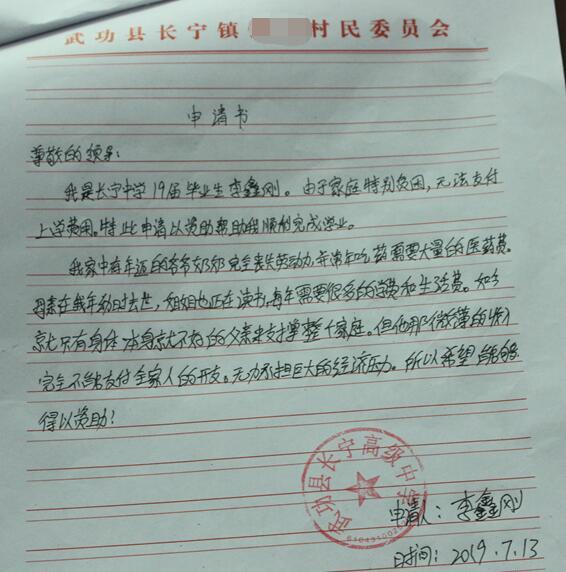 武功县长宁镇 村民委员会
申请书
尊敬的领导:
我是长宁中学19届毕业生李鑫刚。由于家庭特别贫困,无法支付
上学费用。特此申请以资助帮助我顺利完成学业。
我家中有年迈的爷爷奶奶完全丧失劳动力,并常年吃药需要大量的医药费。
母亲在我年幼时去世,姐姐也正在读书,每年需要很多的学费和生活费。如今
就只有身体本身就不好的父亲来支撑整个家庭。但他那微薄的收入
完全不能支付全家人的开支。无力承担巨大的经济压力。所以希望能够
得以资助!
武功县长宁高级中学
申请人:李鑫刚
时间:2019.7.13